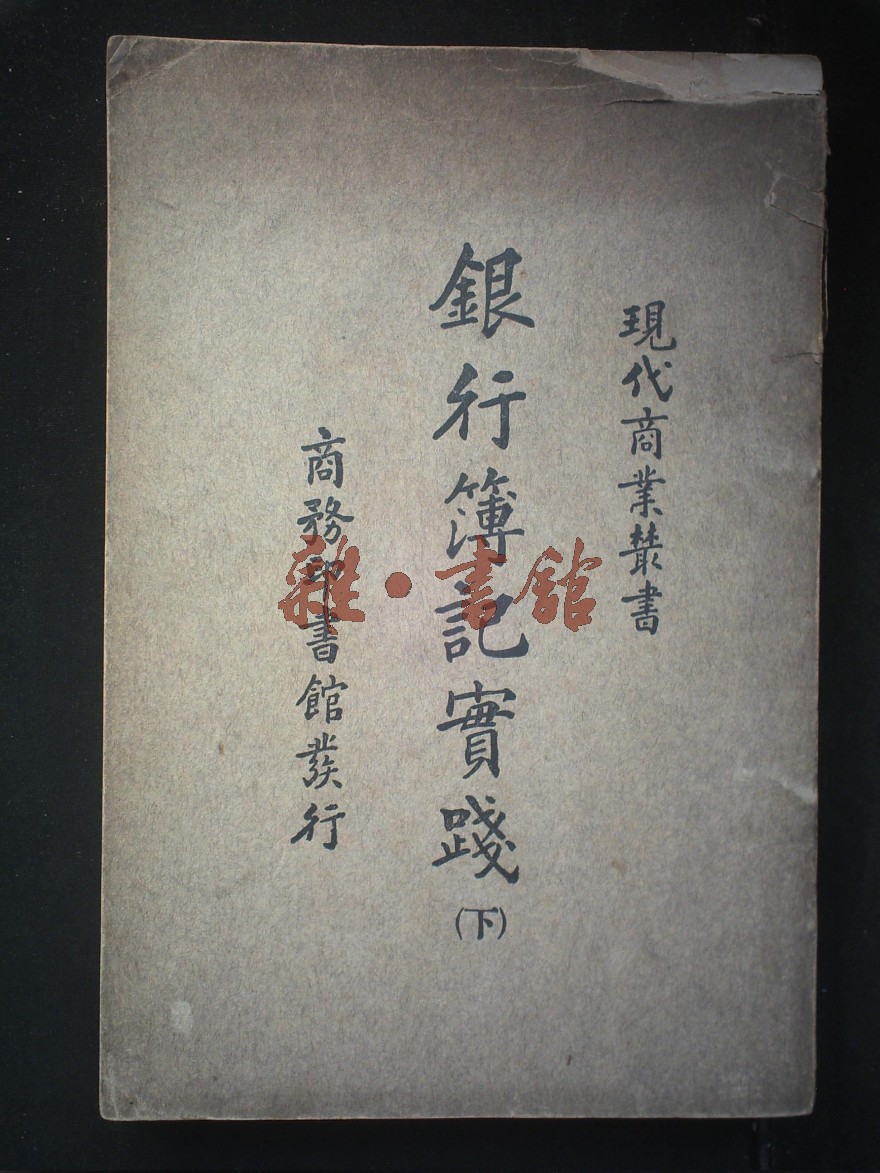 現代商業叢書
銀行簿記實踐(下)
商務印書館發行
雜·書館